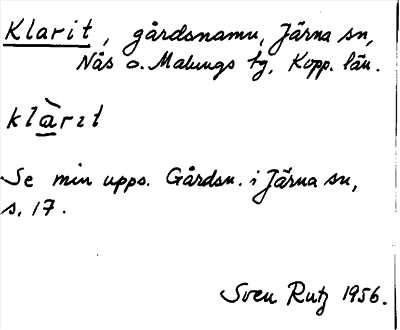 Klarit, gårdsnamn, Järna sn,
Nås o. Malungs tg, Kopp. län.
klàrıt
Se min upps. Gårdsn. i Järna sn,
s. 17.
Sven Rutz 1956.